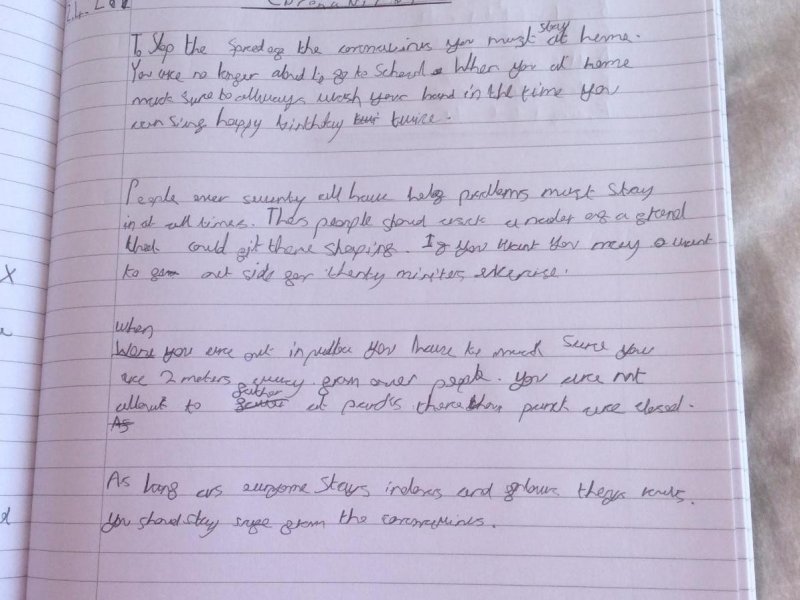 To stop the spred og the coronavirus you must stay at home.
You are no longer aloud to go to School. When you at home
muck sure to allways wash your hand in the time you
can sing happy birthday twice.
People over seventy all have helg problems must stay
in at all times. This people shoud a nader og a grend
that could git there shoping. Ig you want you may want
to go out side gor therty minites exkersise.
when
Were you are out in you have to muck sure you
are 2 meters away grom over people. you are not
allout to gather at parcks there are closed.
As
As long as evryone stays indores and golows theys
you shoud stay sage grom the coronavirus.